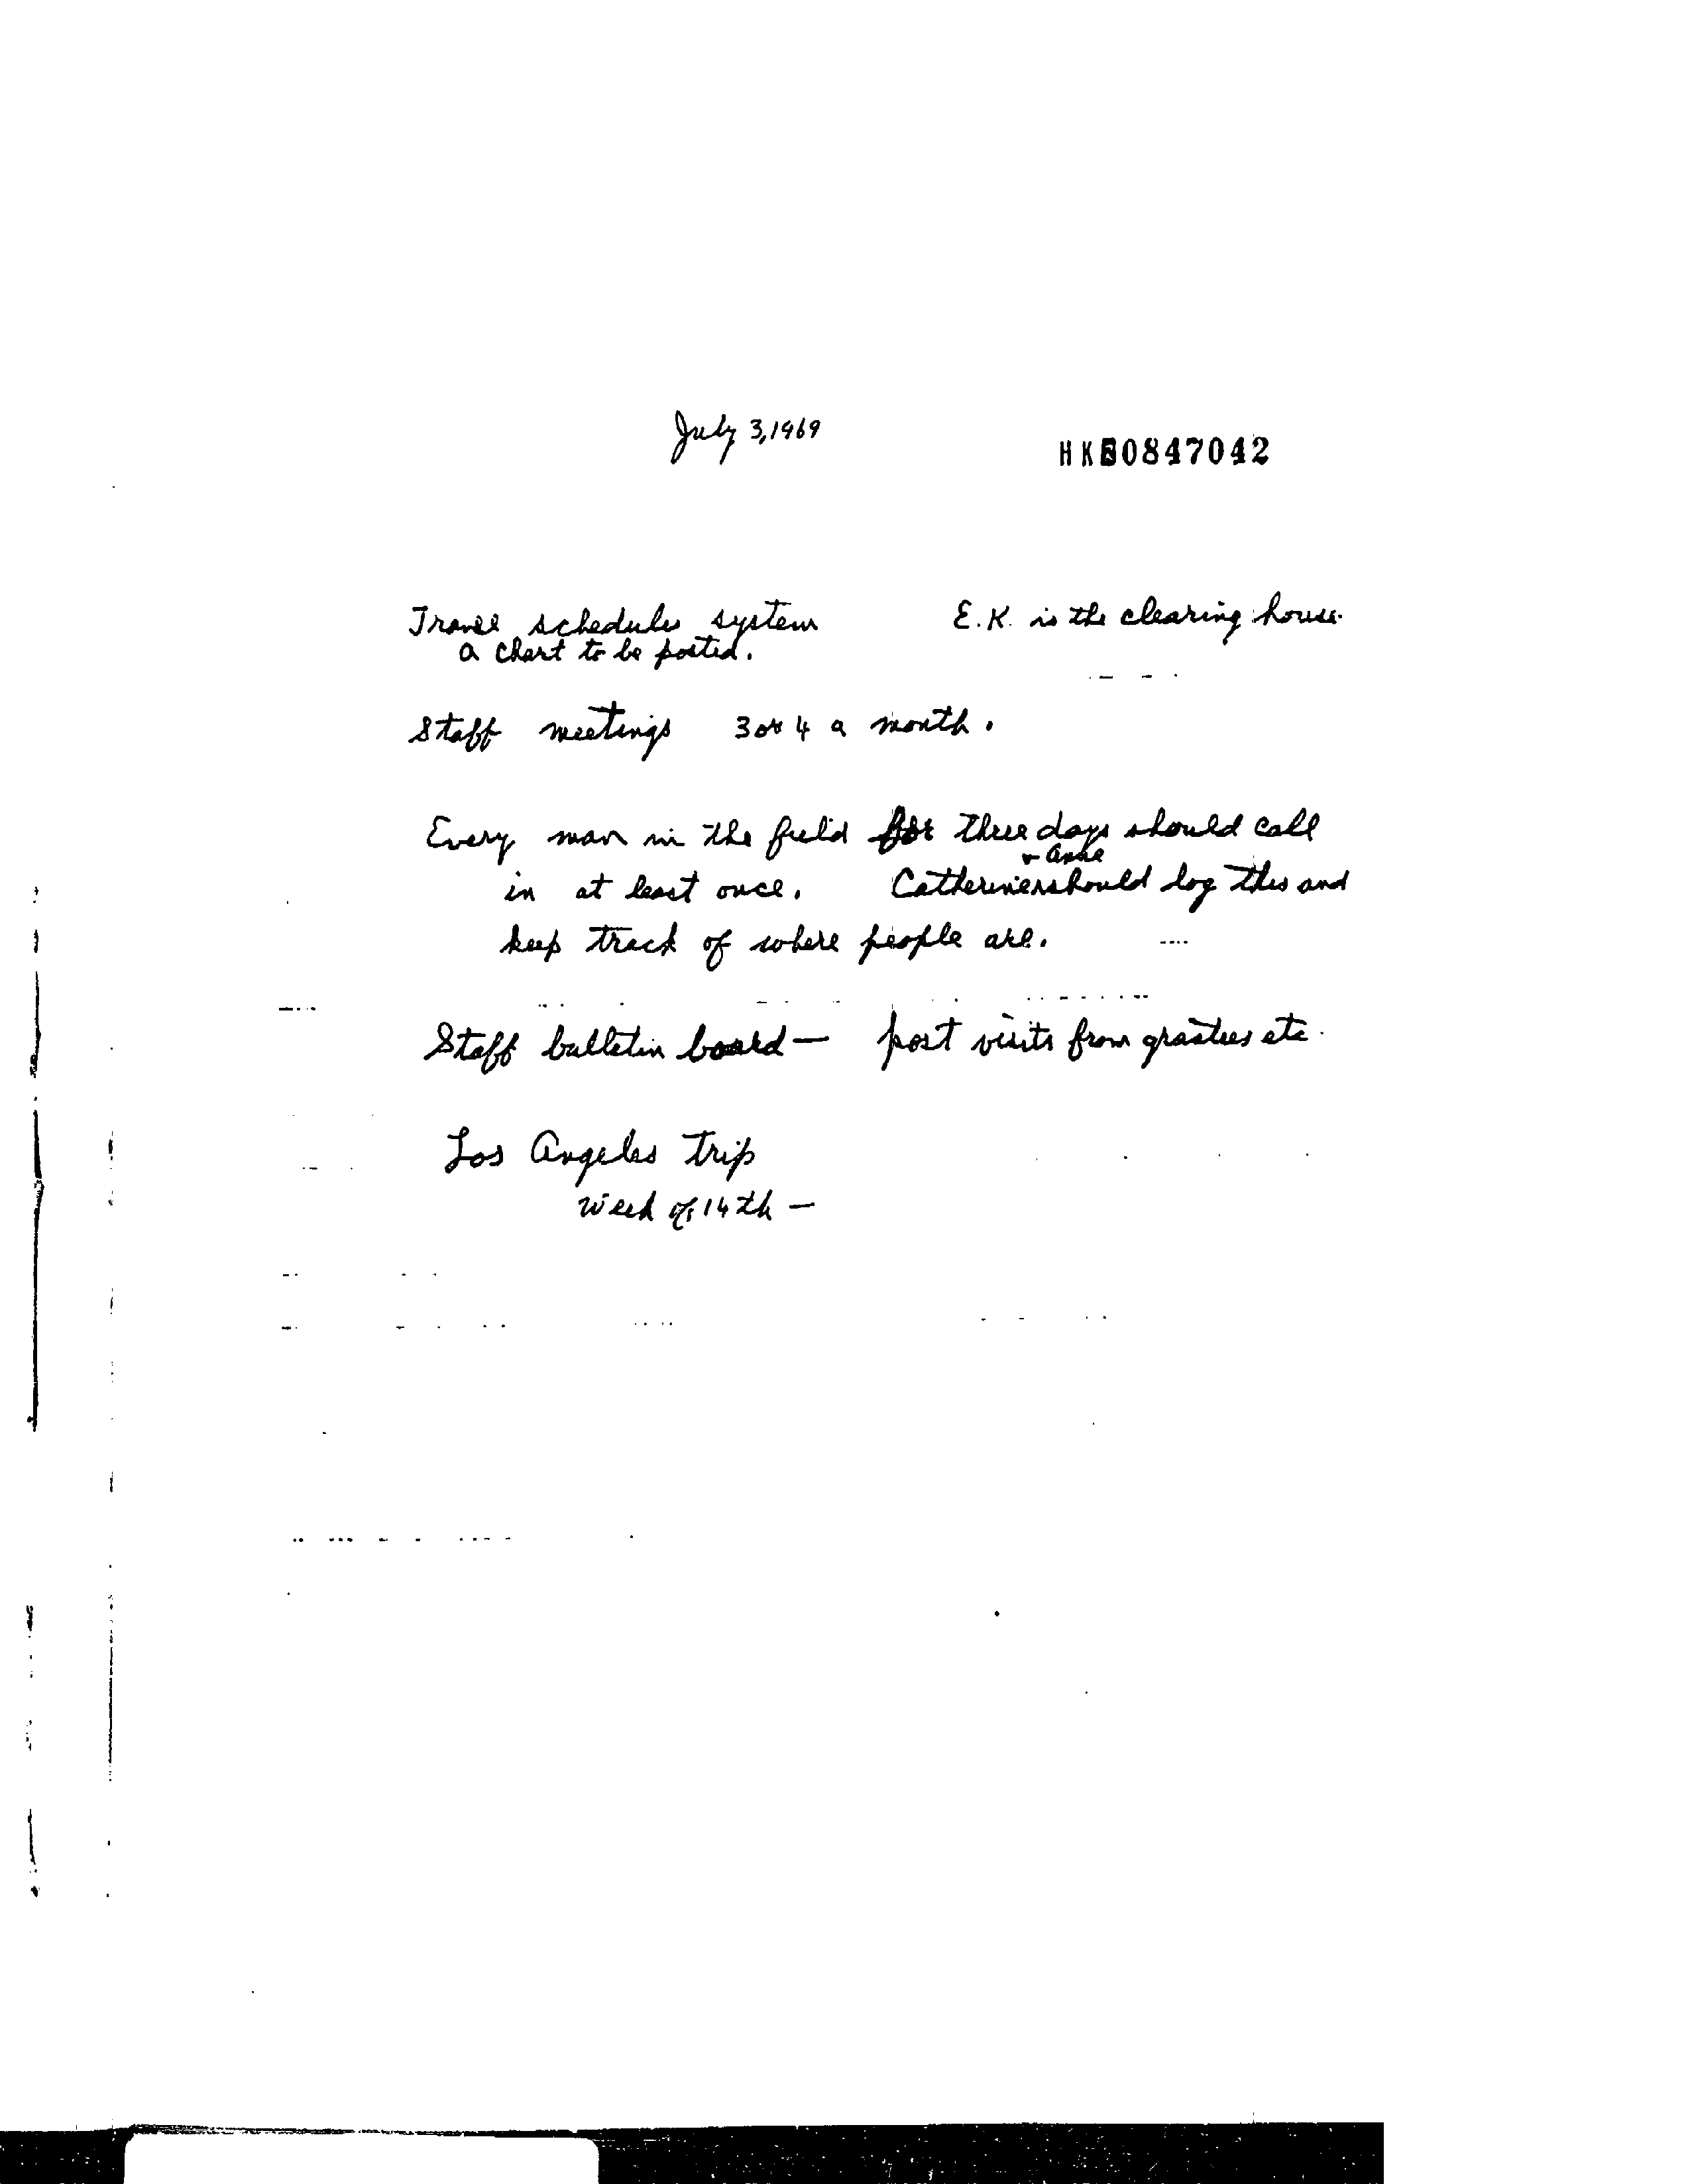 July 3, 1969
HK00847042
Travel schedules system
E.K. is the clearing house.
a chart to be posted.
Staff meetings 3 or 4 a month.
Every man in the field for three days should call
+ Anne
in at least once. Catherine should log this and
keep track of where people are.
Staff bulletin board — post visits from grantees etc.
Los Angeles trip
Week of 14th —